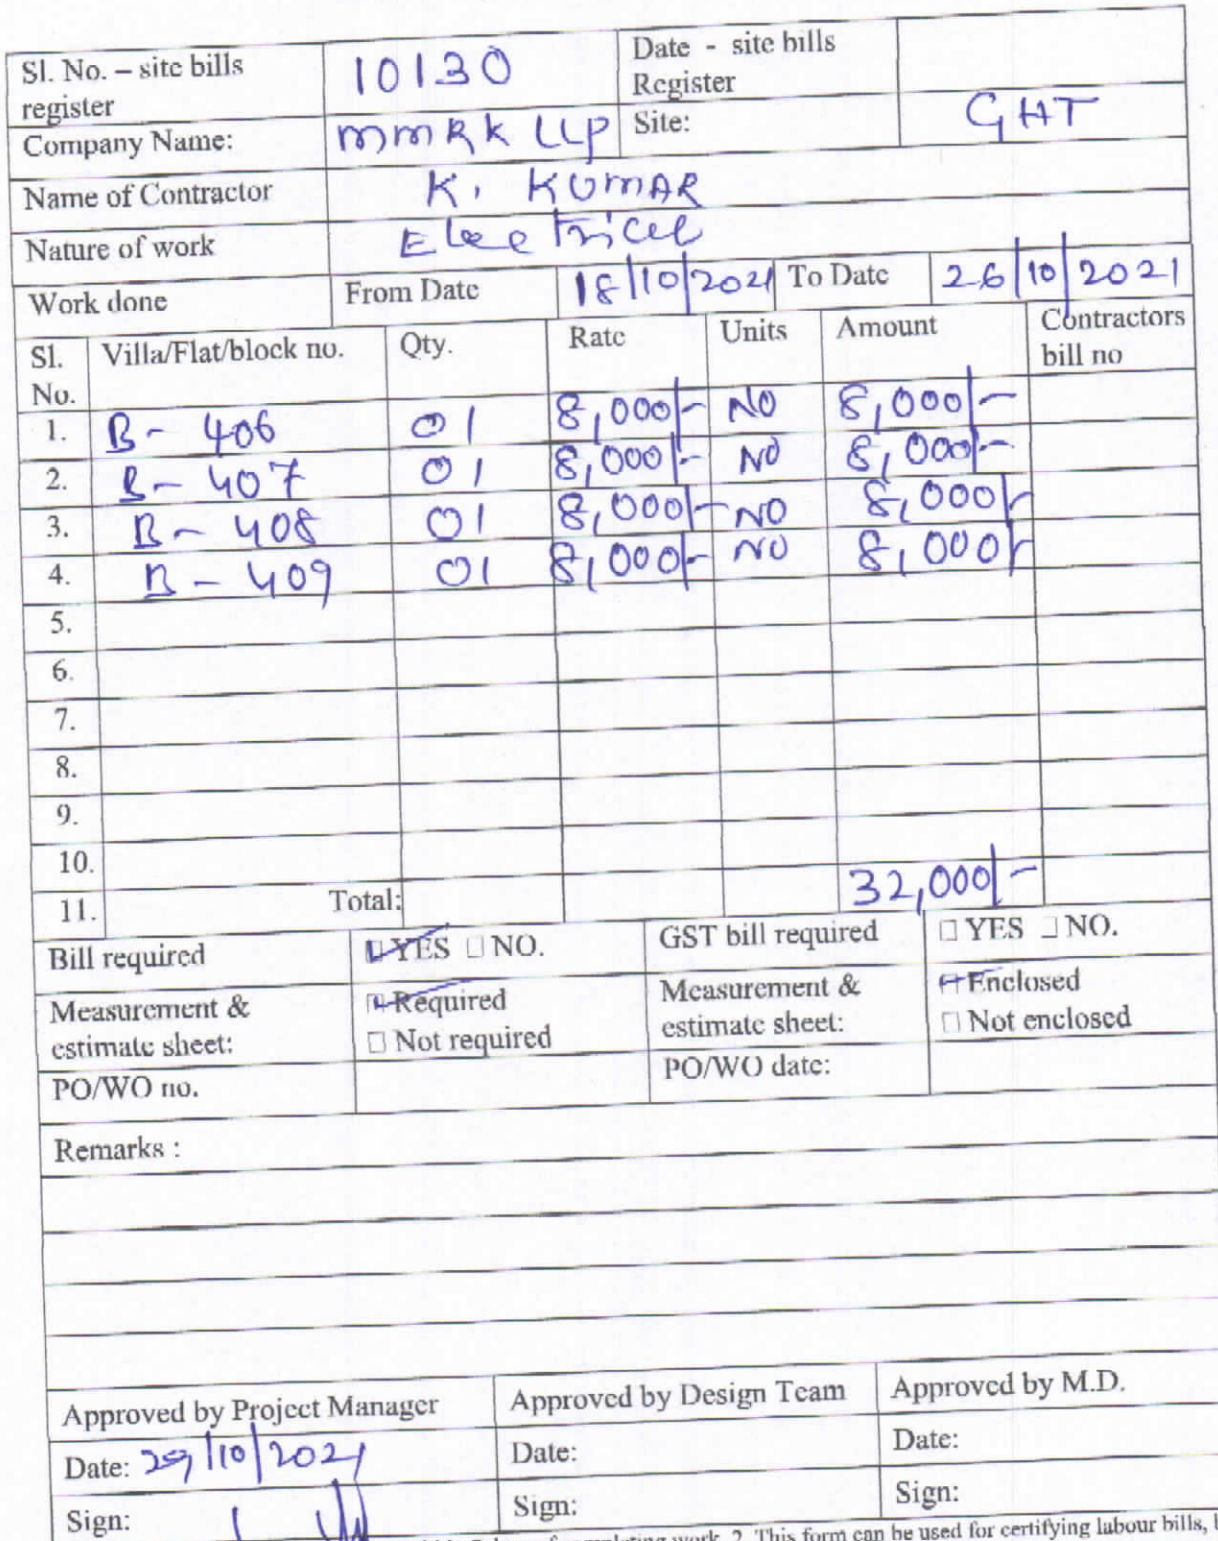 Sl. No. – site bills register 10130 Date - site bills Register
Company Name: MMRK LLP Site: GHT
Name of Contractor K. KUMAR
Nature of work Electrical
Work done From Date 18/10/2021 To Date 26/10/2021
Sl. No. Villa/Flat/block no. Qty. Rate Units Amount Contractors bill no
1. B- 406 01 8,000/- NO 8,000/-
2. B- 407 01 8,000/- NO 8,000/-
3. B- 408 01 8,000/- NO 8,000/-
4. B- 409 01 8,000/- NO 8,000/-
5.
6.
7.
8.
9.
10.
11. Total: 32,000/-
Bill required ☑ YES □ NO. GST bill required □ YES □ NO.
Measurement & estimate sheet: ☑ Required □ Not required Measurement & estimate sheet: ☑ Enclosed □ Not enclosed
PO/WO no. PO/WO date:
Remarks :
Approved by Project Manager Approved by Design Team Approved by M.D.
Date: 29/10/2021 Date: Date:
Sign: Sign: Sign:
work. 2. This form can be used for certifying labour bills,